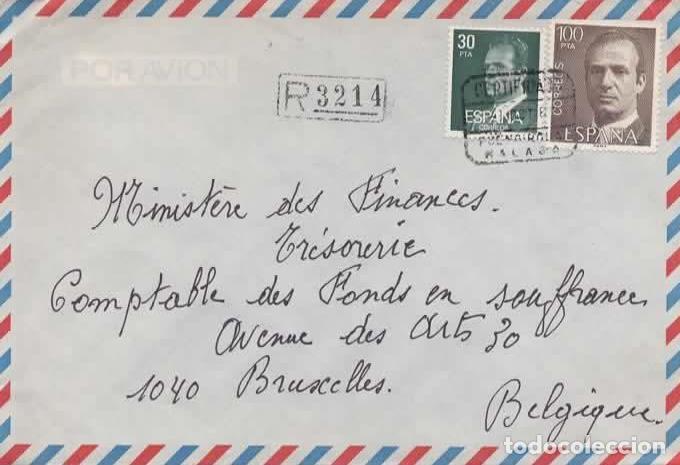 30
PTA
ESPAÑA
CORREOS
100
PTA
CORREOS
ESPAÑA
POR AVION
R 3214
CERTIFICA
FUENGIROLA
MALAGA
Ministère des Finances.
Trésorerie
Comptable des Fonds en souffrance
Avenue des Arts 30
1040 Bruxelles.
Belgique.
todocoleccion